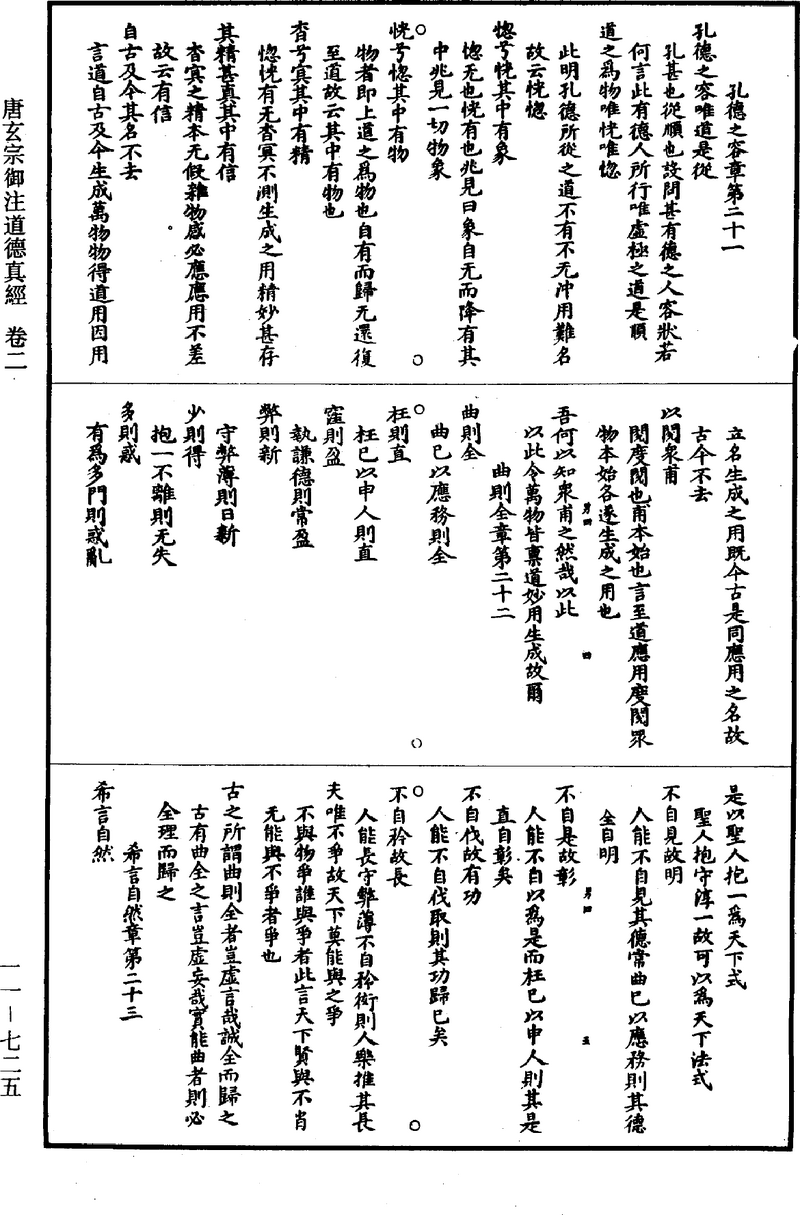 唐玄宗御注道德真經　卷二
一一－七二五
孔德之容章第二十一
孔德之容唯道是從
孔甚也從順也設問甚有德之人容狀若
何言此有德人所行唯虛極之道是順
道之為物唯恍唯惚
此明孔德所從之道不有不无沖用難名
故云恍惚
惚兮恍其中有象
惚无也恍有也兆見曰象自无而降有其
中兆見一切物象
恍兮惚其中有物
物者即上道之為物也自有而歸无還復
至道故云其中有物也
杳兮冥其中有精
惚恍有无杳冥不測生成之用精妙甚存
其精甚真其中有信
杳冥之精本无假雜物感必應應用不差
故云有信
自古及今其名不去
言道自古及今生成萬物物得道用因用
立名生成之用既今古是同應用之名故
古今不去
以閱眾甫
閱度閱也甫本始也言至道應用度閱眾
物本始各遂生成之用也
吾何以知眾甫之然哉以此
以此今萬物皆稟道妙用生成故爾
曲則全章第二十二
曲則全
曲己以應務則全
枉則直
枉己以申人則直
窪則盈
執謙德則常盈
弊則新
守弊薄則日新
少則得
抱一不離則无失
多則惑
有為多門則惑亂
是以聖人抱一為天下式
聖人抱守淳一故可以為天下法式
不自見故明
人能不自見其德常曲己以應務則其德
全自明
不自是故彰
人能不自以為是而枉己以申人則其是
直自彰矣
不自伐故有功
人能不自伐取則其功歸己矣
不自矜故長
人能長守弊薄不自矜衒則人樂推其長
夫唯不爭故天下莫能與之爭
不與物爭誰與爭者此言天下賢與不肖
无能與不爭者爭也
古之所謂曲則全者豈虛言哉誠全而歸之
古有曲全之言豈虛妄哉實能曲者則必
全理而歸之
希言自然章第二十三
希言自然